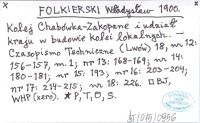 FOLKIERSKI Władysław 1900.
Kolej Chabówka-Zakopane i udział
kraju w budowie kolei lokalnych. —
Czasopismo Techniczne (Lwów) 18, nr 12:
156-157, m. 1; nr 13: 168-169; nr 14:
180-181; nr 15: 193; nr 16: 203-204;
nr 17: 214-215; nr 18: 226. BJ,
WHP (xero). * P, T, C, S.